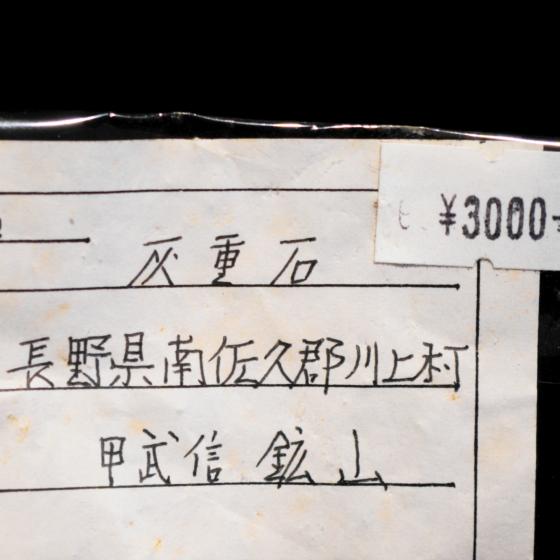 ¥3000-
灰重石
長野県南佐久郡川上村
甲武信 鉱山